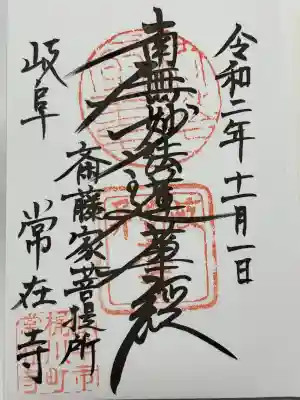 令和二年十一月一日
南無妙法蓮華殿
斎藤家菩提所
岐阜 常在寺